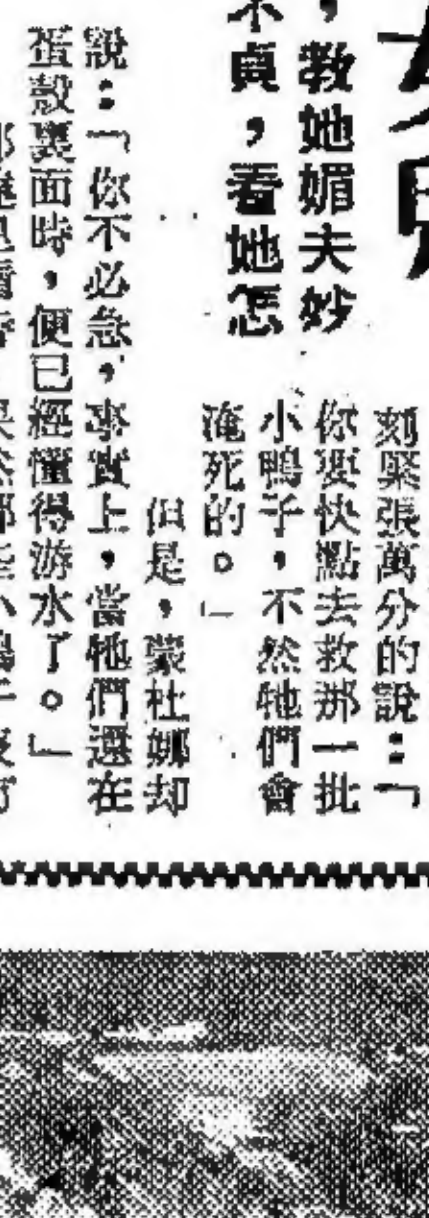 ，教她媚夫妙
不貞，看她怎
刻緊張萬分的說：「
你要快點去救那一批
小鴨子，不然牠們會
淹死的。」
但是，蒙杜娜却
說：「你不必急，事實上，當牠們還在
蛋殼裏面時，便已經懂得游水了。」